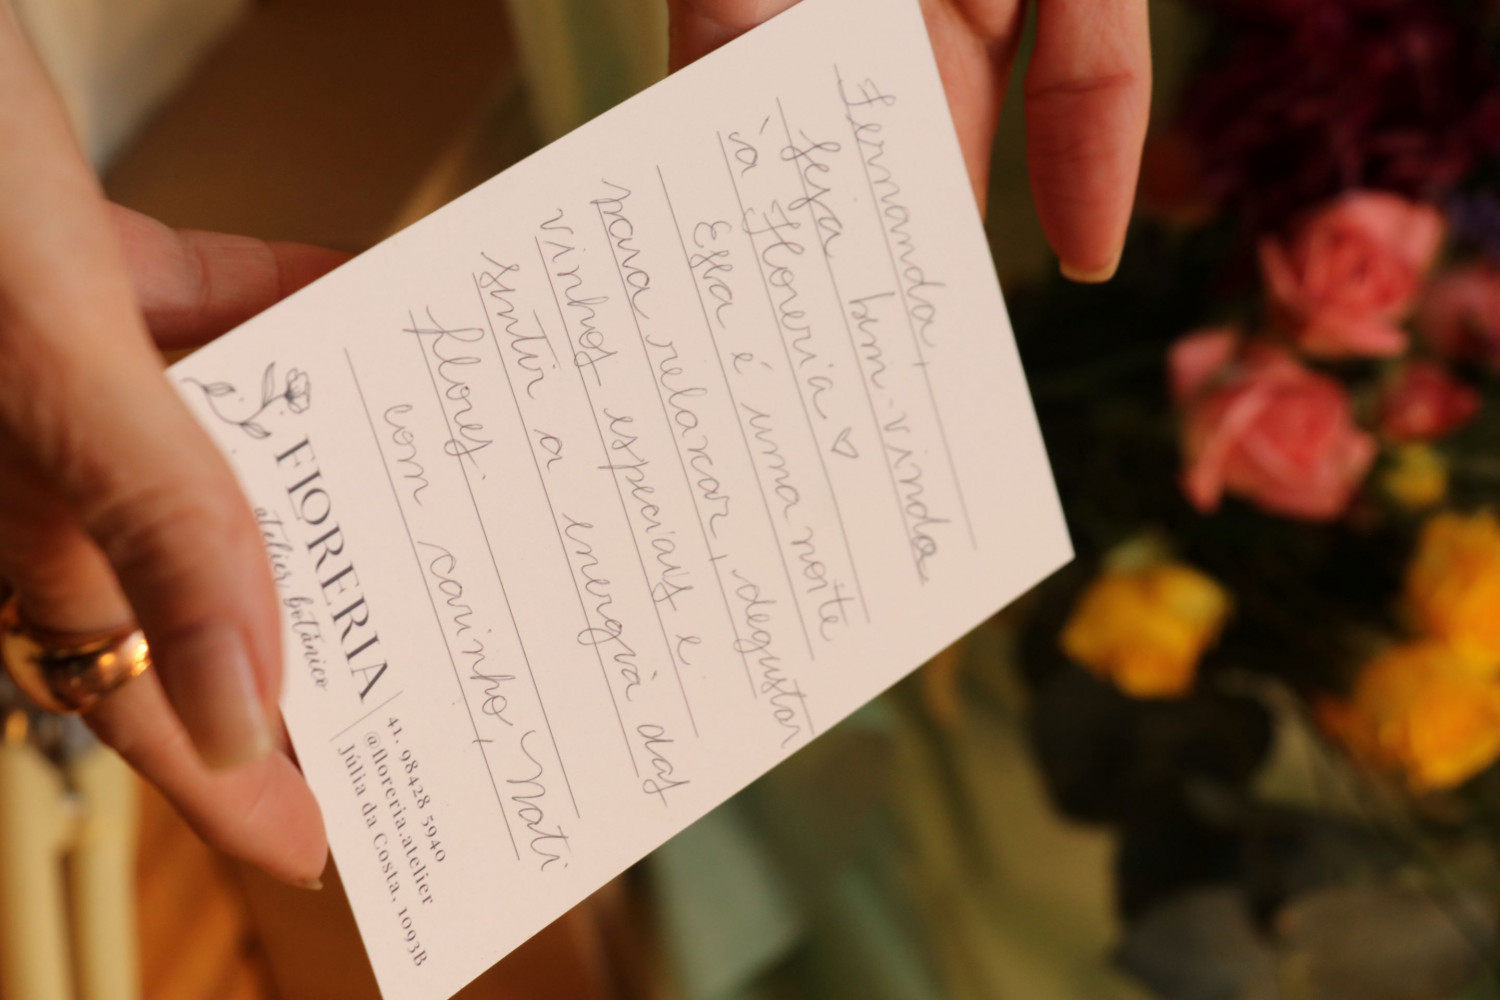 Fernanda,
Seja bem-vinda
à Floreria ♡
Essa é uma noite
para relaxar, degustar
vinhos especiais e
sentir a energia das
flores.
com carinho, Nati
FLORERIA
atelier botânico
41. 98428 5940
@floreria.atelier
Júlia da Costa, 1093B